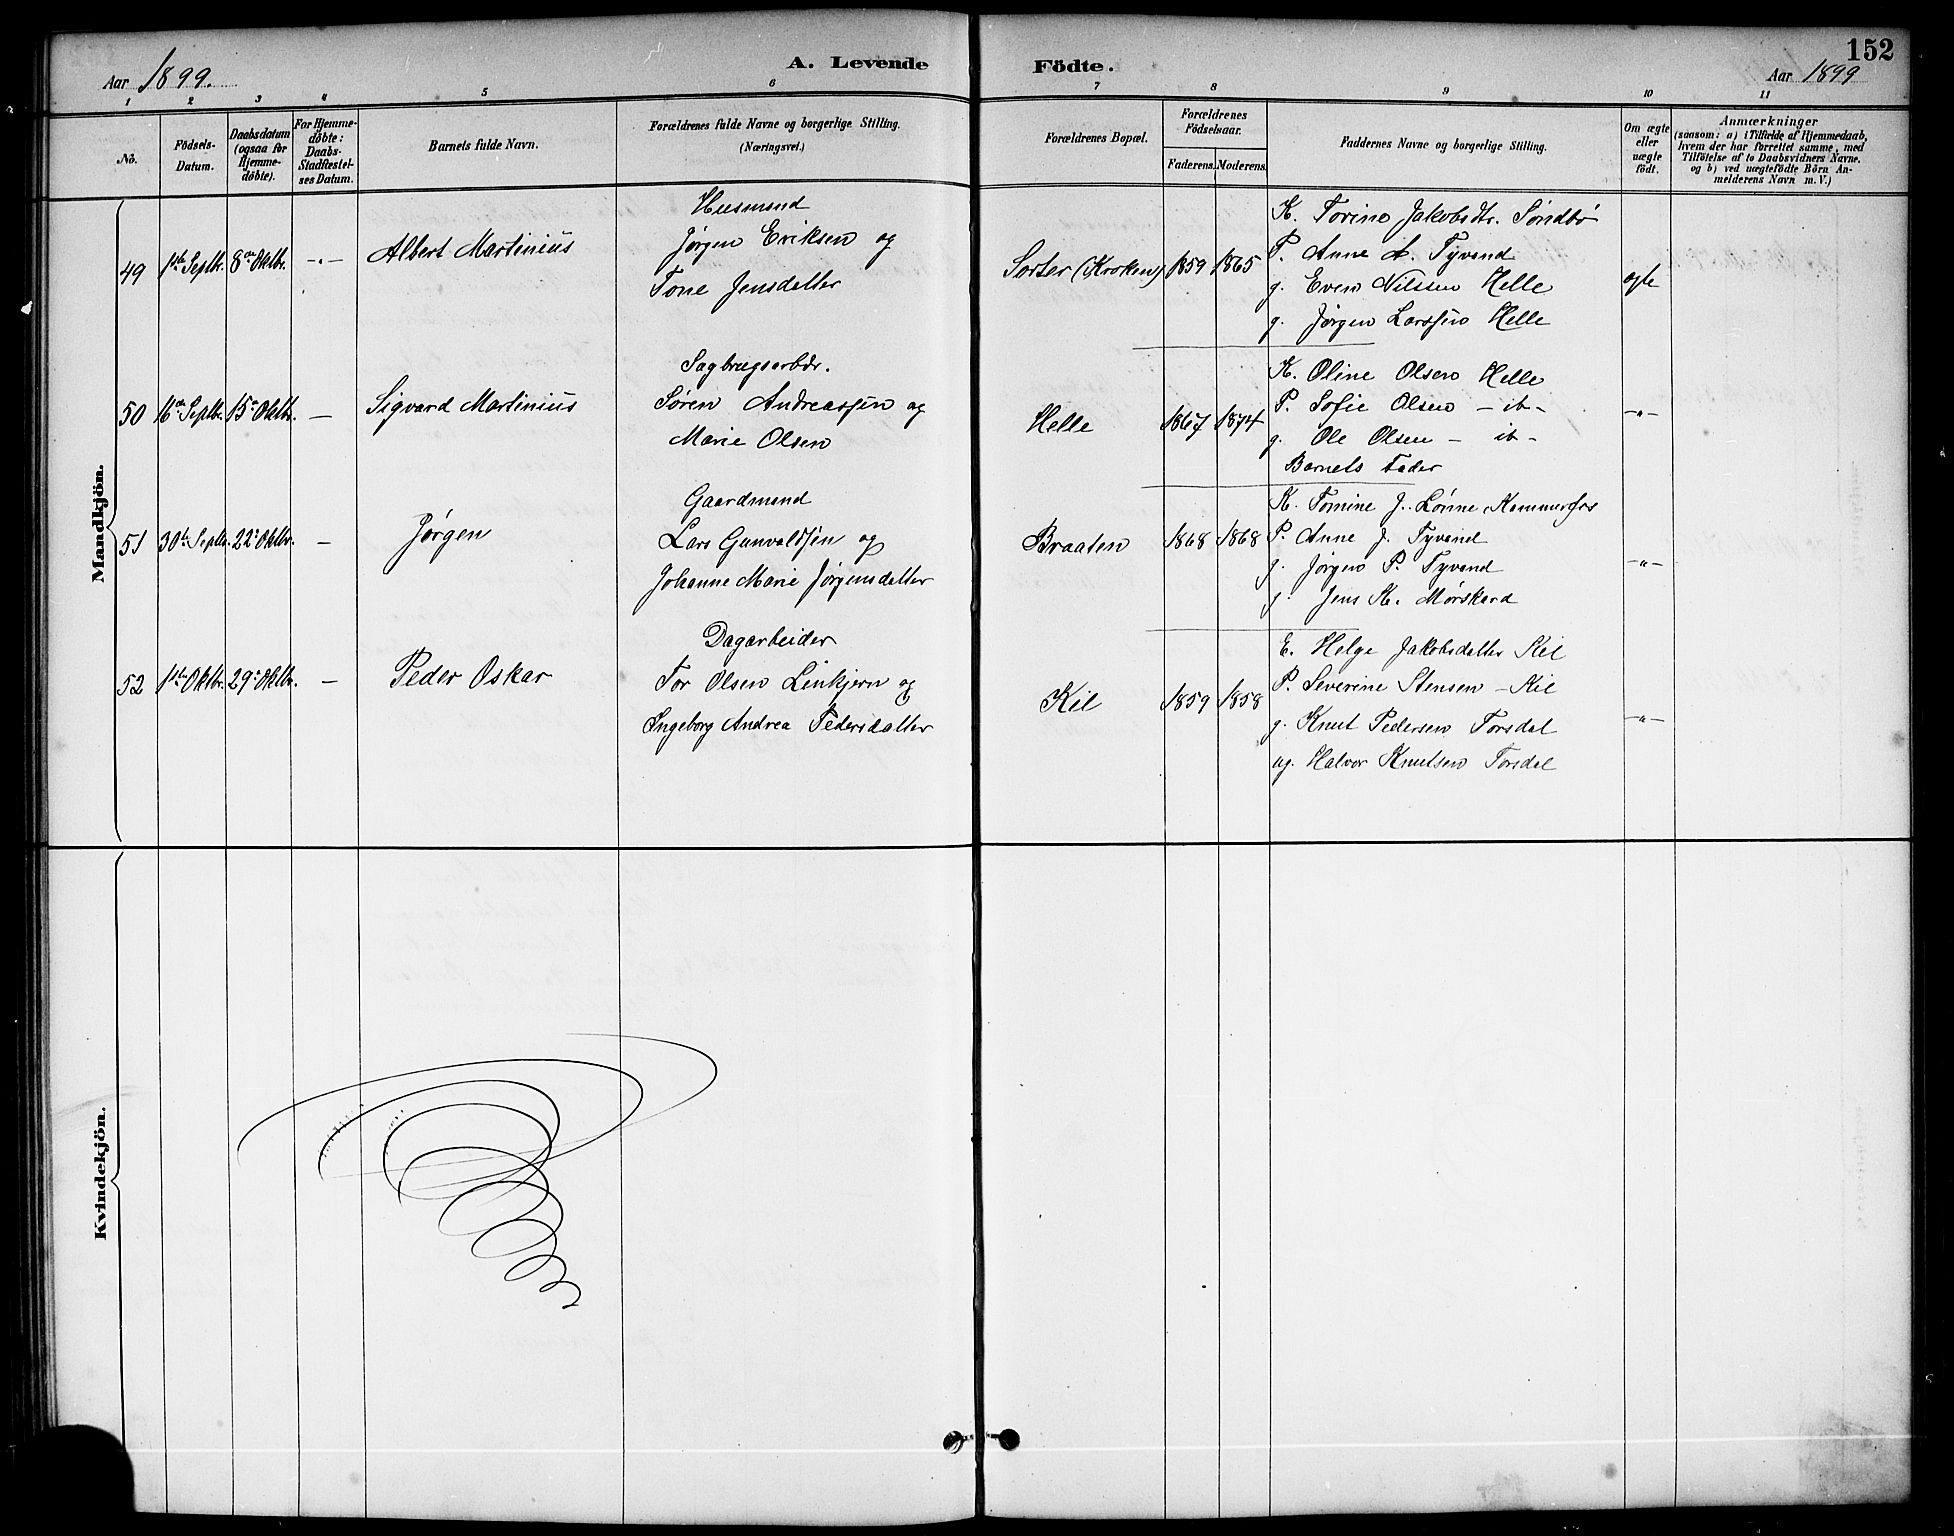 152
Aar 1899.
A. Levende Födte.
Aar 1899
1 2 3 4 5 6 7 8 9 10 11
No.
Födsels-
Datum.
Daabsdatum
(ogsaa for
Hjemme-
döbte).
For Hjemme-
döbte:
Daabs-
Stadfæstel-
ses Datum.
Barnets fulde Navn.
Forældrenes fulde Navne og borgerlige Stilling.
(Næringsvei.)
Forældrenes Bopæl.
Forældrenes
Födselsaar.
Faderens. Moderens.
Faddernes Navne og borgerlige Stilling.
Om ægte
eller
uægte
födt.
Anmærkninger
(saasom: a) i Tilfælde af Hjemmedaab,
hvem der har forrettet samme, med
Tilföielse af to Daabsvidners Navne.
og b) ved uægtefödte Börn An-
melderens Navn m. V.)
Mandkjön.
49
1ste Septbr.
8de Oktbr.
-"-
Albert Martinius
Husmand
Jørgen Eriksen og
Tone Jensdatter
Sorter (Kroken)
1859
1865
K. Torine Jakobsdtr. Søndbø
P. Anne A. Tyvand
g. Even Nilssen Helle
g. Jørgen Larssen Helle
ægte
50
16de Septbr.
15de Oktbr.
-
Sigvard Martinius
Sagbrugsarbdr.
Søren Andreassen og
Marie Olsen
Helle
1867
1874
K. Oline Olsen Helle
P. Sofie Olsen - ib -
g. Ole Olsen - ib -
Barnets Fader
-"-
51
30te Septbr.
22de Oktbr.
-
Jørgen
Gaardmand
Lars Gunvaldsen og
Johanne Marie Jørgensdatter
Braaten
1868
1868
K. Tomine J. Lønne, Kammerfos
P. Anne J. Tyvand
g. Jørgen P. Tyvand
g. Jens K. Mørskard
-"-
52
1ste Oktbr.
29de Oktbr.
-
Peder Oskar
Dagarbeider
Tor Olsen Linkjern og
Ingeborg Andrea Pedersdatter
Kil
1859
1858
E. Helge Jakobsdatter Kil
P. Severine Stensen - Kil
g. Knut Pedersen Torsdal
ug. Halvor Knutsen Torsdal
-"-
Kvindekjön.